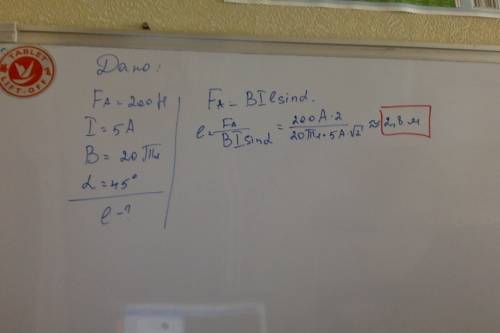 TABLET
LIFT-OFF
Дано:
Fₐ = 200 Н
I = 5 А
B = 20 Тл
α = 45°
l - ?
Fₐ = BIl sinα.
l = Fₐ / BI sinα = 200 А · 2 / 20 Тл · 5 А · √2 ≈ 2,8 м